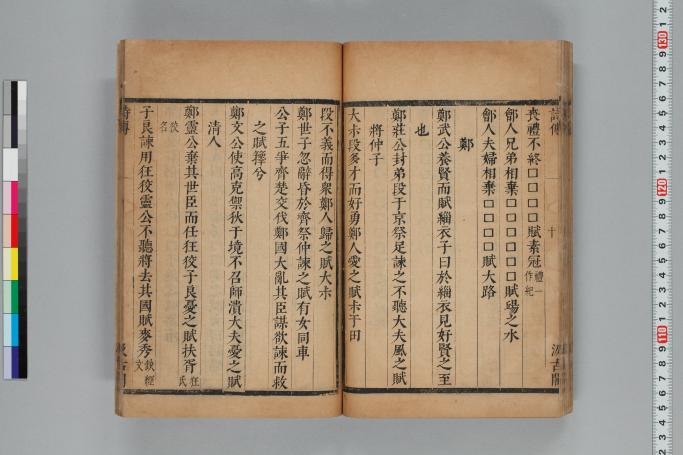 詩傳
十
汲古閣
喪禮不終口口口口賦素冠禮一作紀
鄶人兄弟相棄口口口口賦揚之水
鄶人夫婦相棄口口口口賦大路
鄭
鄭武公養賢而賦緇衣子曰於緇衣見好賢之至
也
鄭莊公封弟段于京祭足諫之不聽大夫風之賦
將仲子
大叔段多才而好勇鄭人愛之賦叔于田
段不義而得衆鄭人歸之賦大叔
鄭世子忽辭昏於齊祭仲諫之賦有女同車
公子五爭齊楚交伐鄭國大亂其臣謀欲諫而救
之賦蘀兮
鄭文公使高克禦狄于境不召師潰大夫憂之賦
清人
鄭靈公棄其世臣而任狂狡子良憂之賦扶胥狂氏狡名
子良諫用狂狡靈公不聽將去其國賦麥秀
詩傳
汲古閣